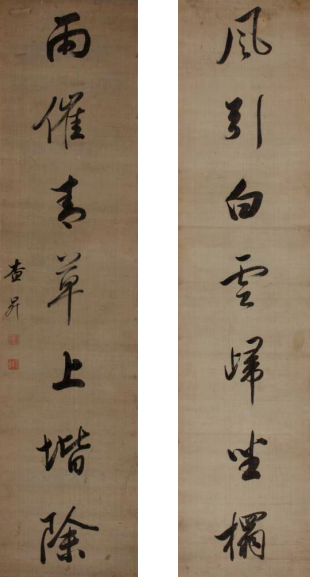 風引白雲歸坐榻
雨催青草上堦除
查昇